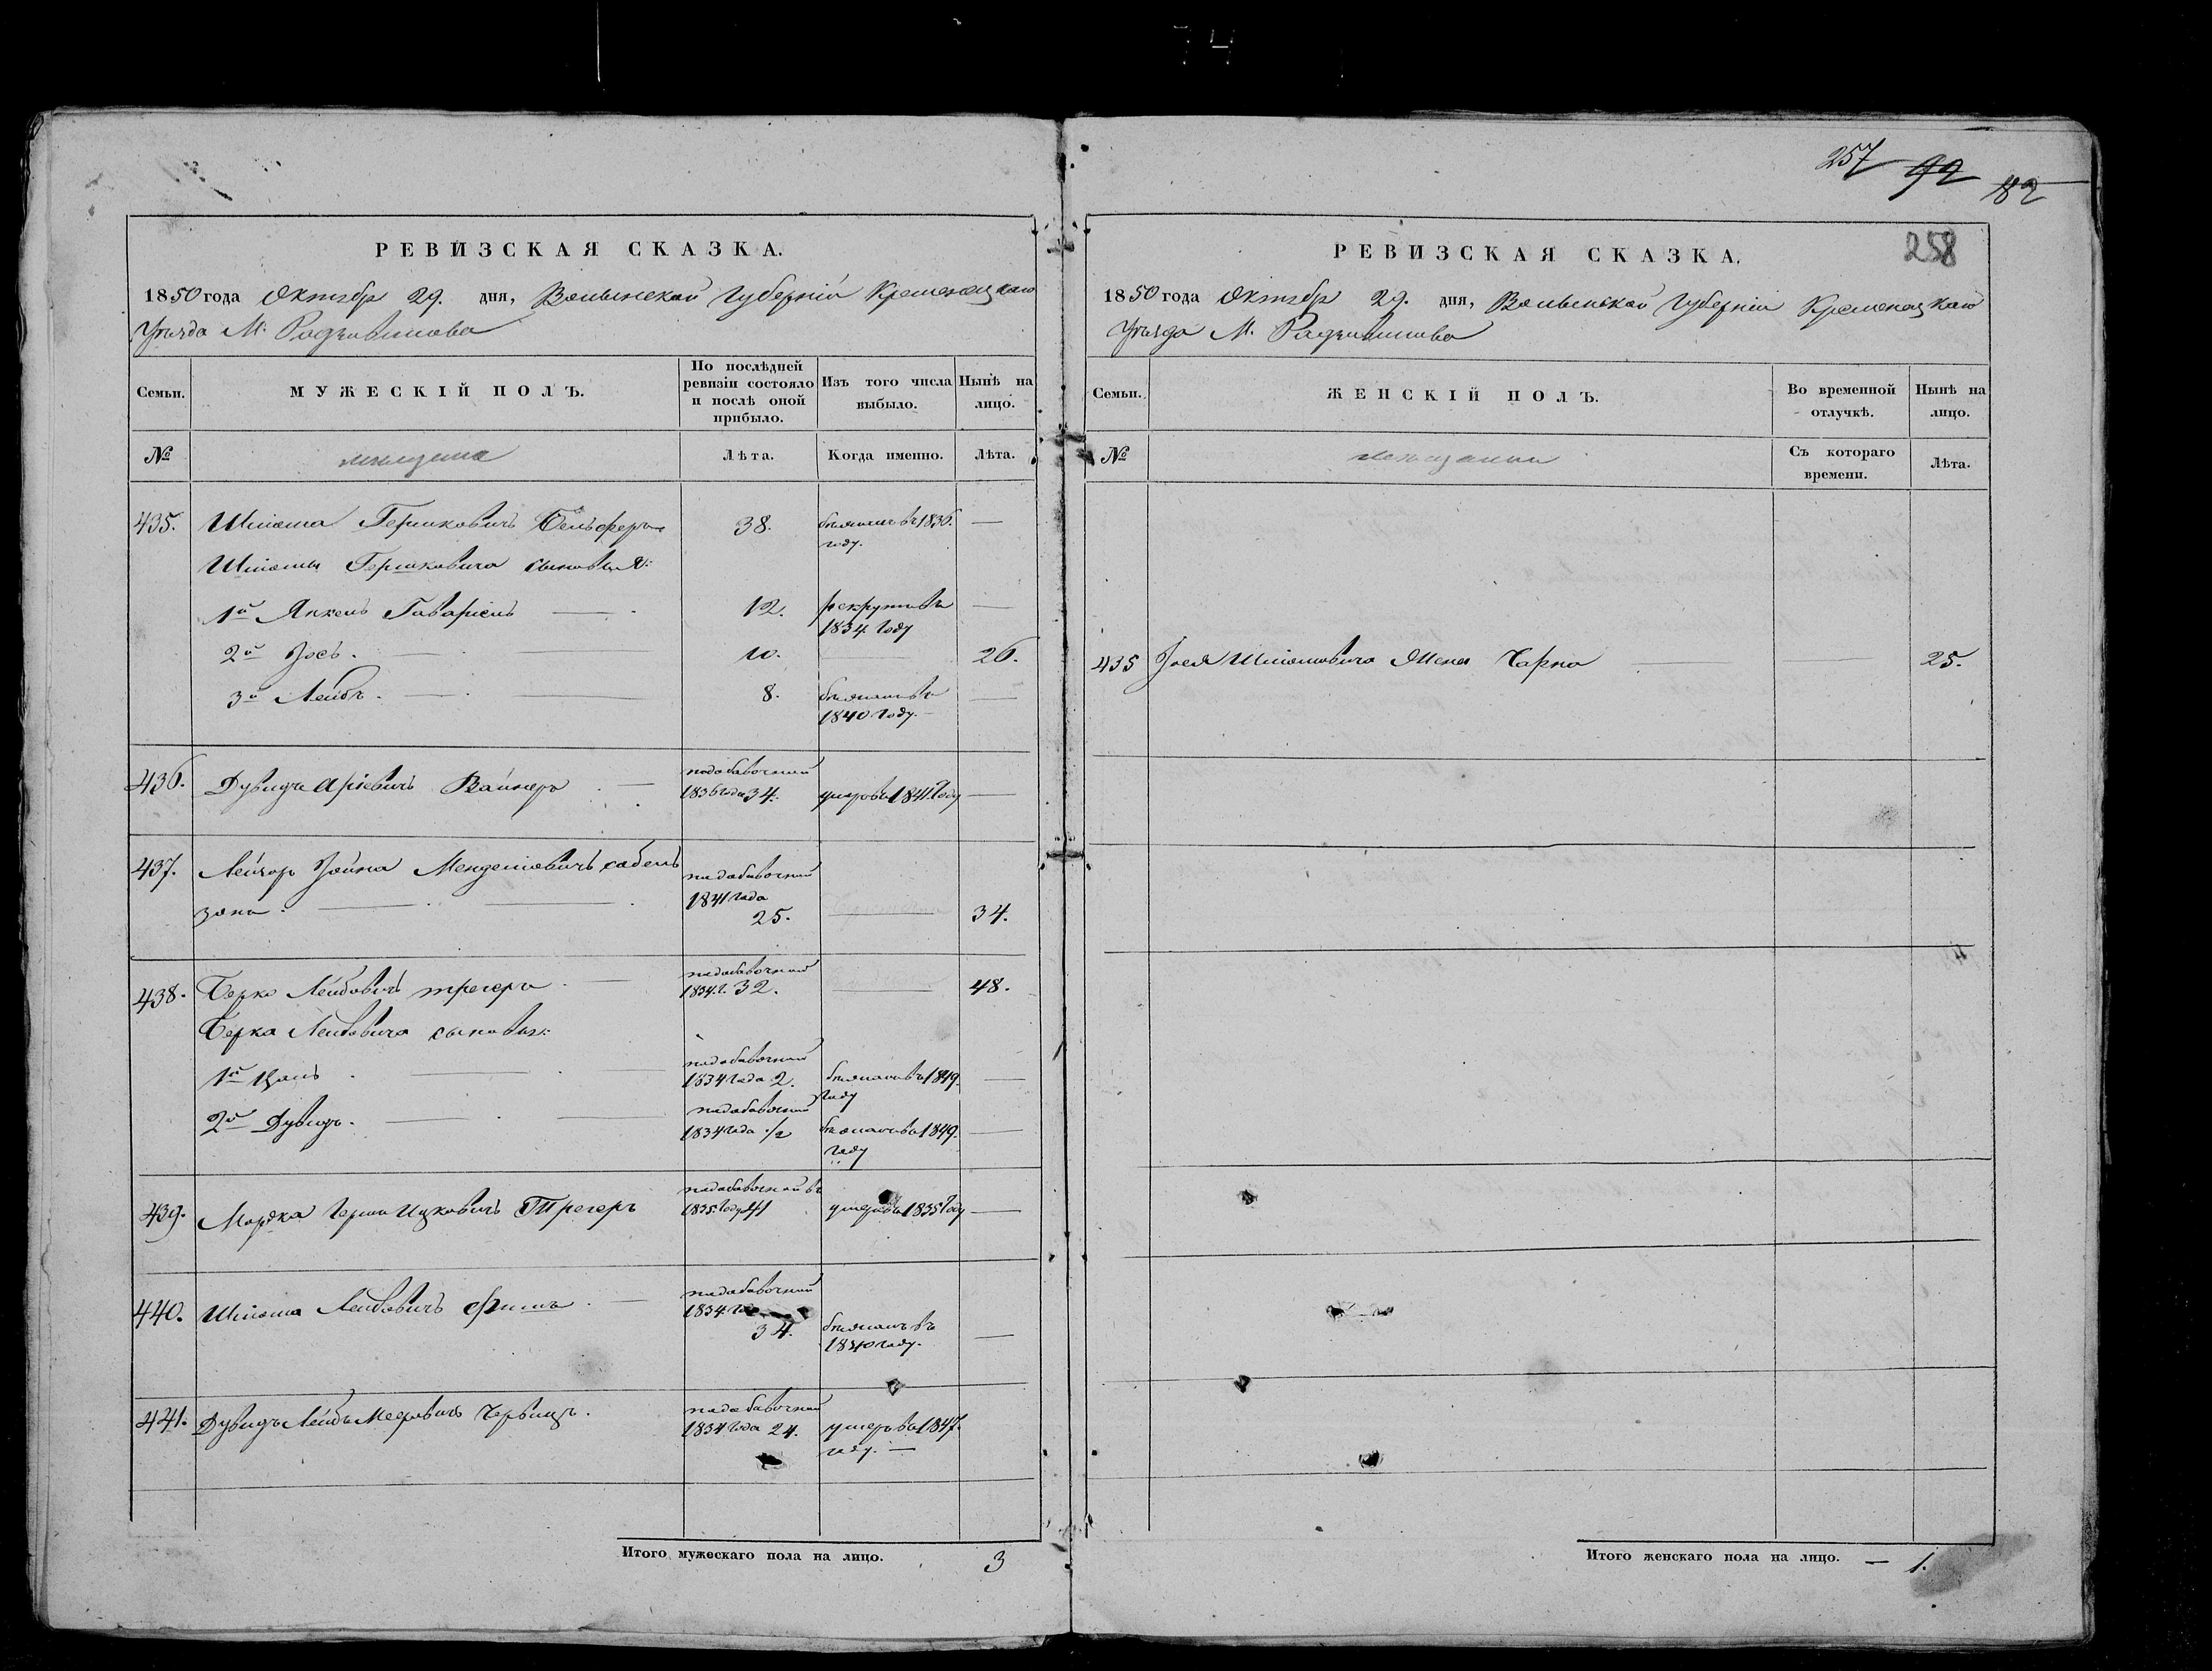 257 92 182
РЕВИЗСКАЯ СКАЗКА.
1850 года Октября 29. дня, Волынской Губерніи Кременецкаго
Уѣзда М. Радзивилова
Семьи. МУЖЕСКІЙ ПОЛЪ. По послѣдней ревизіи состояло и послѣ оной прибыло. Изъ того числа выбыло. Нынѣ на лицо.
№ мещане Лѣта. Когда именно. Лѣта.
435. Шліома Гершковичъ Бельферъ 38. бѣжалъ въ 1836. —
году.
Шліомы Гершковича сыновья:
1й Янкель Гавріель — 12. рекрутъ въ —
1834 году
2й Іось. — 10. 26.
3й Лейбъ. — 8. бѣжалъ въ —
1840 году. —
436. Дувидъ Аріевичъ Вайнеръ — подобавочный
1836 года 34. умеръ въ 1841 году —
437. Лейзоръ Іойна Менделіовичъ
зона. — подобавочный
1841 года
25. — 34.
438. Берко Лейбовичъ трегеръ — подобавочный
1834 г. 32. — 48.
Берка Лейбовича сыновья:
1й — подобавочный
1834 года 2. бѣжалъ въ 1849. —
году
2й Дувидъ. — подобавочный
1834 года 1/2 бѣжалъ въ 1849. —
году
439. Мордка Герш Ицковичъ Трегеръ подобавочный въ
1835 году 41 умеръ въ 1835 году —
440. Шліома Лейбовичъ Фишъ — подобавочный
1834
34. бѣжалъ въ —
1840 году.
441. Дувидъ Лейбъ Мееровичъ Червицъ. подобавочный
1834 года 24. умеръ въ 1847.
году. —
Итого мужескаго пола на лицо. 3
РЕВИЗСКАЯ СКАЗКА. 258
1850 года Октября 29. дня, Волынской Губерніи Кременецкаго
Уѣзда М. Радзивилова
Семьи. ЖЕНСКІЙ ПОЛЪ. Во временной отлучкѣ. Нынѣ на лицо.
№ Съ котораго времени. Лѣта.
435 Іося Шліомовича Жена Чарна — 25.
Итого женскаго пола на лицо. — 1.